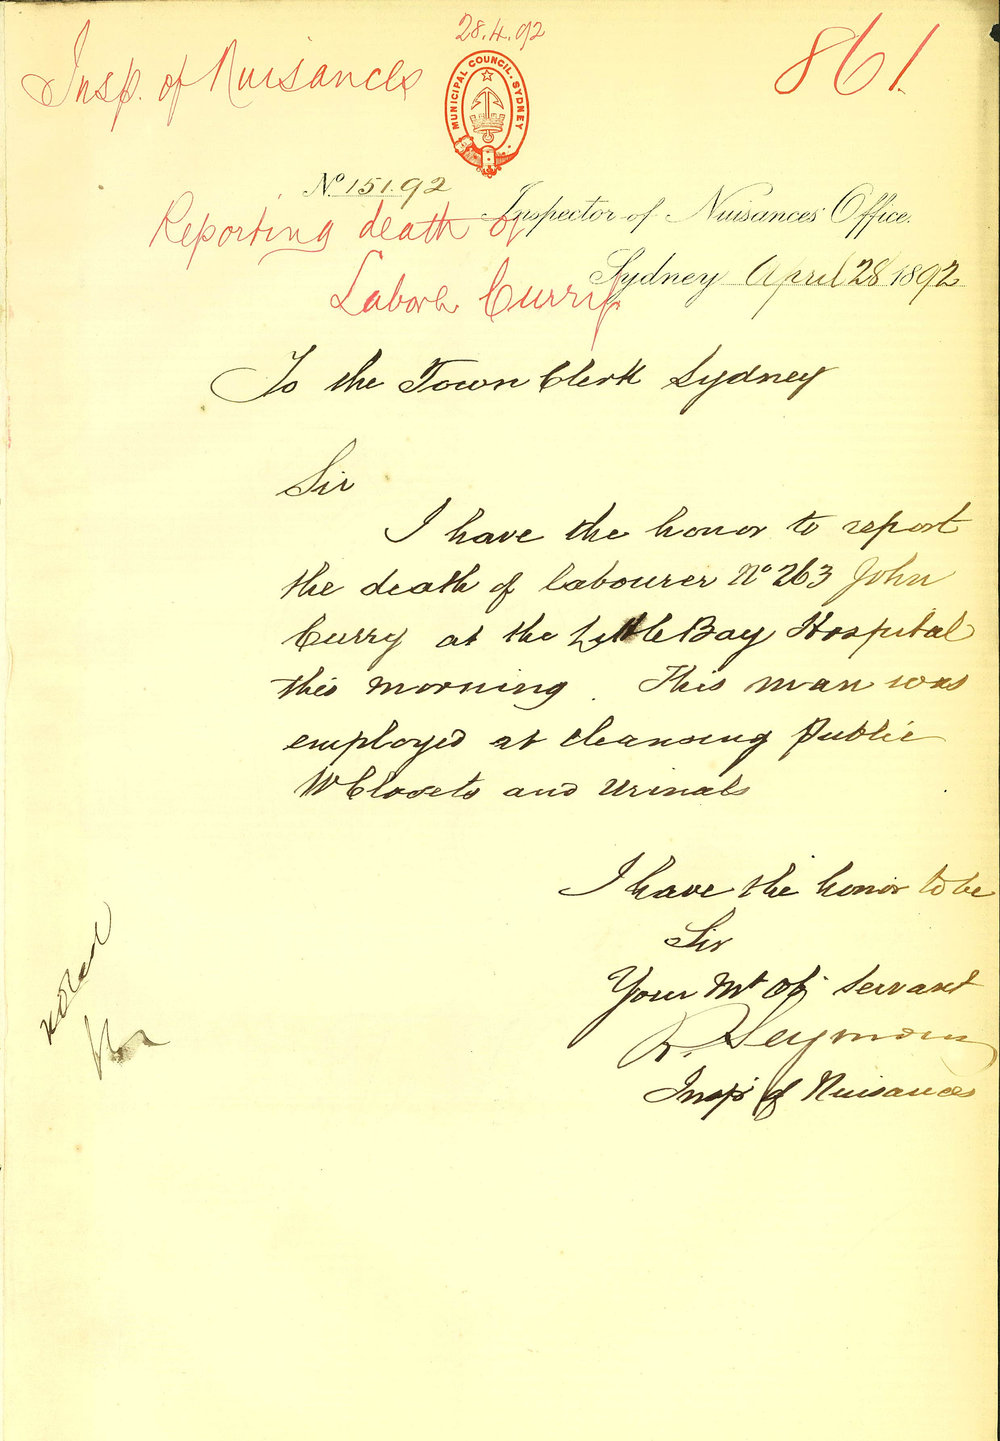 28.4.92
Insp. of Nuisances
861.
MUNICIPAL COUNCIL. SYDNEY
No 151.92
Inspector of Nuisances' Office.
Reporting death of
Sydney April 28 1892
Labore Curry
To the Town Clerk Sydney
Sir
I have the honor to report
the death of labourer No 263 John
Curry at the Little Bay Hospital
this morning. This man was
employed at cleansing Public
W Closets and Urinals
I have the honor to be
Sir
Your Mt Ob servant
R. Seymour
Inspr of Nuisances
noted